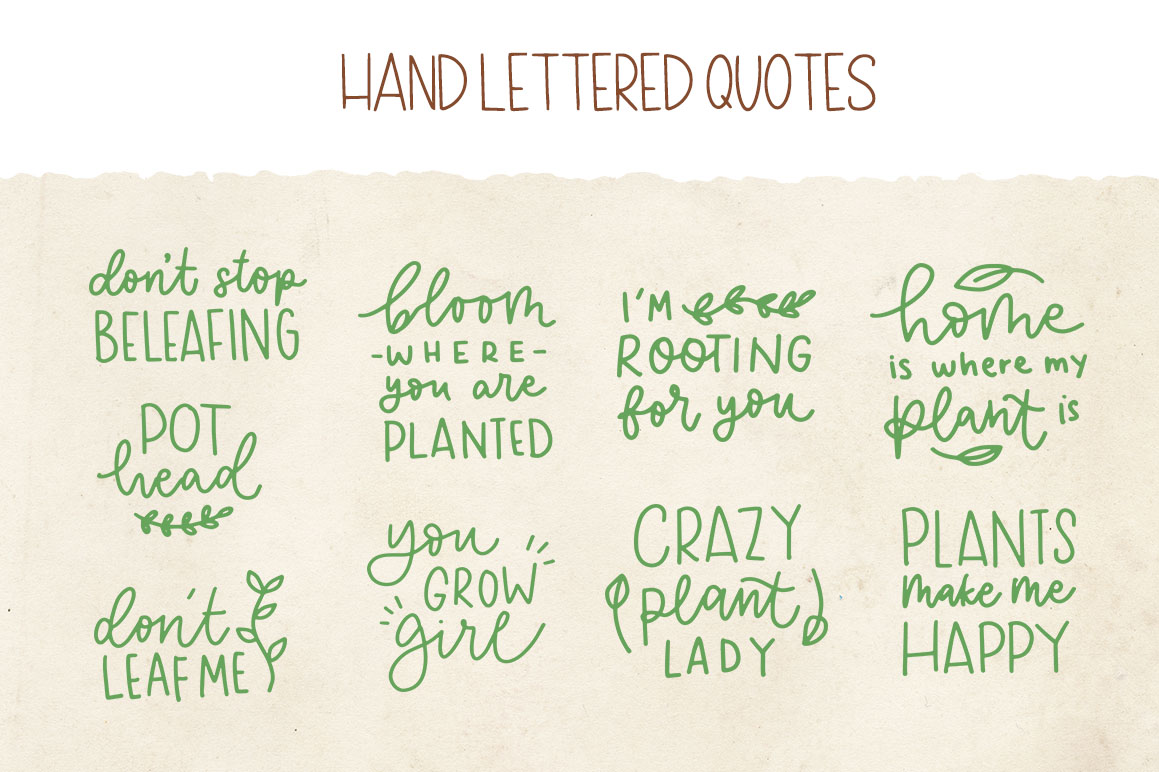 HAND LETTERED QUOTES
don't stop
BELEAFING
POT
head
don't
LEAF ME
bloom
-WHERE-
you are
PLANTED
you
GROW
girl
I'M
ROOTING
for you
CRAZY
plant
LADY
home
is where my
plant is
PLANTS
make me
HAPPY